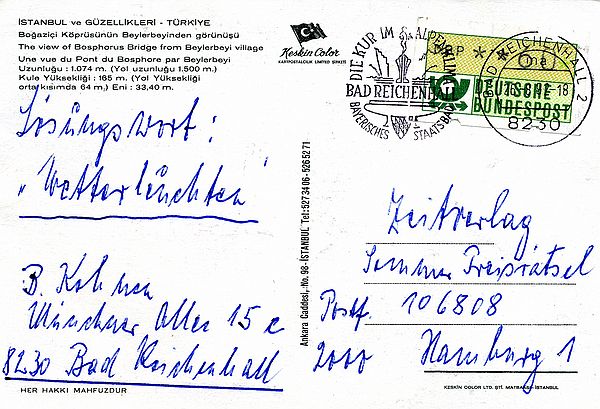 İSTANBUL ve GÜZELLİKLERİ - TÜRKİYE
Boğaziçi Köprüsünün Beylerbeyinden görünüşü
The view of Bosphorus Bridge from Beylerbeyi village
Une vue du Pont du Bosphore par Beylerbeyi
Uzunluğu : 1.074 m. (Yol uzunluğu 1.500 m.)
Kule Yüksekliği : 165 m. (Yol Yüksekliği
orta kısımda 64 m,) Eni : 33,40 m.
Lösungswort:
„Wetterleuchten"
B. Kohnen
Münchner Allee 15 c
8230 Bad Reichenhall
HER HAKKI MAHFUZDUR
Keskin Color
KARTPOSTALCILIK LİMİTED ŞİRKETİ
Ankara Caddesi, No. 98-İSTANBUL Tel: 527 34 06 - 526 52 71
DIE KUR IM ALPENKLIMA
BAD REICHENHALL
BAYERISCHES STAATSBAD
BAD REICHENHALL 2
ma
-18
8230
DEUTSCHE
BUNDESPOST
Zeitverlag
Sommer Preisrätsel
Postf. 106808
2000 Hamburg 1
KESKİN COLOR LTD. ŞTİ. MATBAASI-İSTANBUL